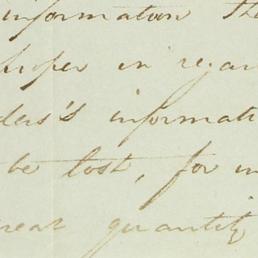 information the
proper in regar
ders's informati
be lost, for in
great quantity